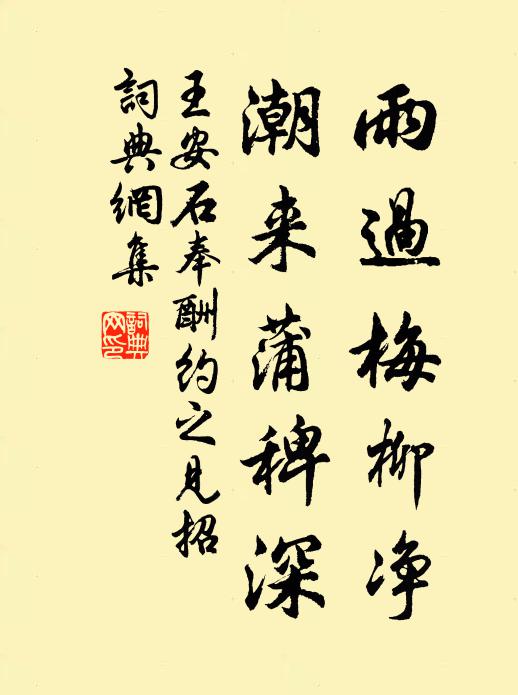 雨過梅柳净
潮来蒲稗深
王安石奉酬约之見招
詞典網集
詞典
网印